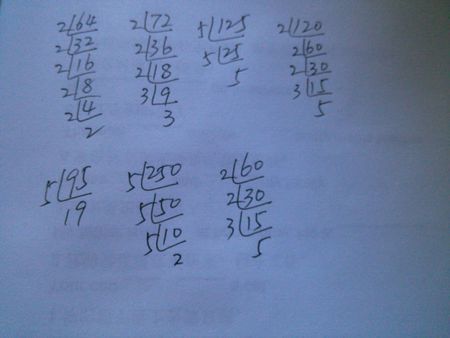 2 64 2 72 5 125 2 120
2 32 2 36 5 25 2 60
2 16 2 18 5 2 30
2 8 3 9 3 15
2 4 3 5
2
5 95 5 250 2 60
19 5 50 2 30
5 10 3 15
2 5